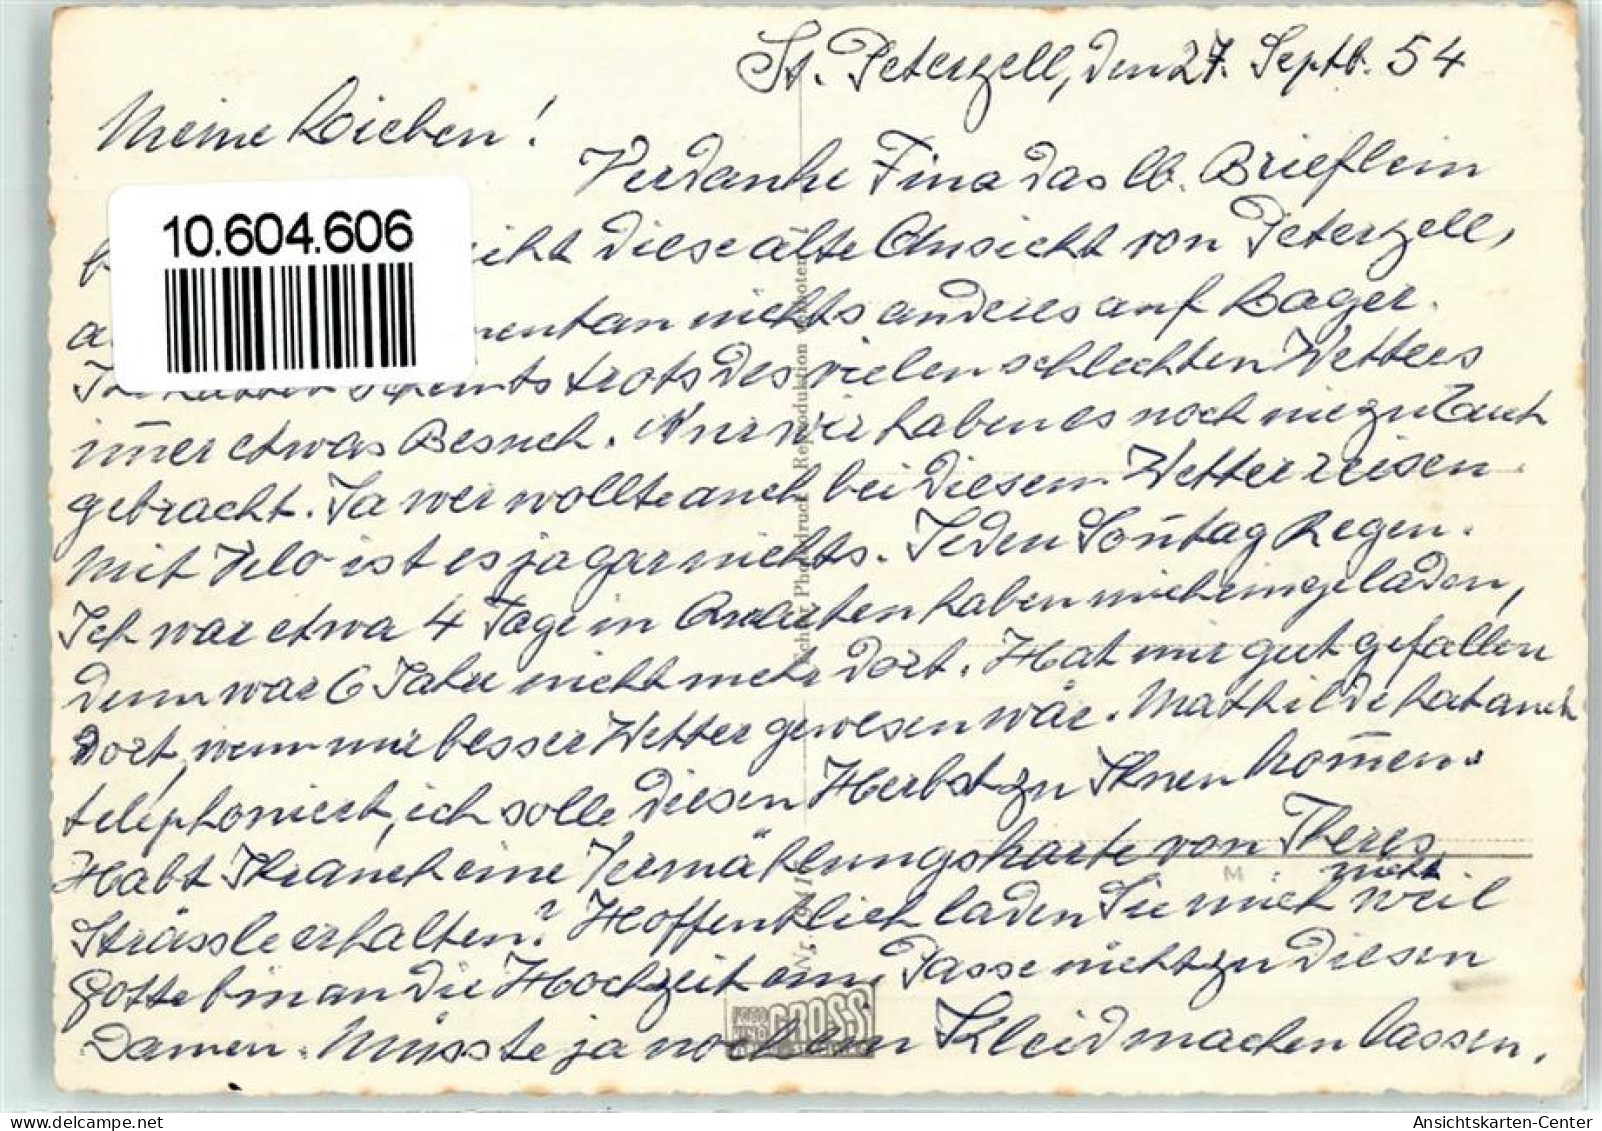 St. Peterzell, den 27. Septb. 54
Meine Lieben!
Verdanke Fina das lb. Brieflein
diese alte Ansicht von Peterzell,
nichts anderes auf Lager.
scheints trots des vielen schlechten Wetters
im̄er etwas Besuch. Nur wir haben es noch nie zu Euch
gebracht. Ja wer wollte auch bei diesem Wetter reisen
mit Velo ist es ja gar nichts. Jeden Son̄tag Regen.
Ich war etwa 4 Tage in haben mich eingeladen,
denn war 6 Jahre nicht mehr dort. Hat mir gut gefallen
dort, wenn nur besser Wetter gewesen wär. Mathilde hat auch
telephoniert, ich solle diesen Herbst zu Ihnen kom̄en.
Habt Ihr auch eine Vermählungskarte von Theres
Strässle erhalten? Hoffentlich laden Sie mich nicht weil
Gotte bin an die Hochzeit ein. Passe nicht zu diesen
Damen. Müsste ja noch ein Kleid machen lassen.
10.604.606
Echter Photodruck Reproduktion verboten
Nr.
FOTO
GROSS
M
Ansichtskarten-Center